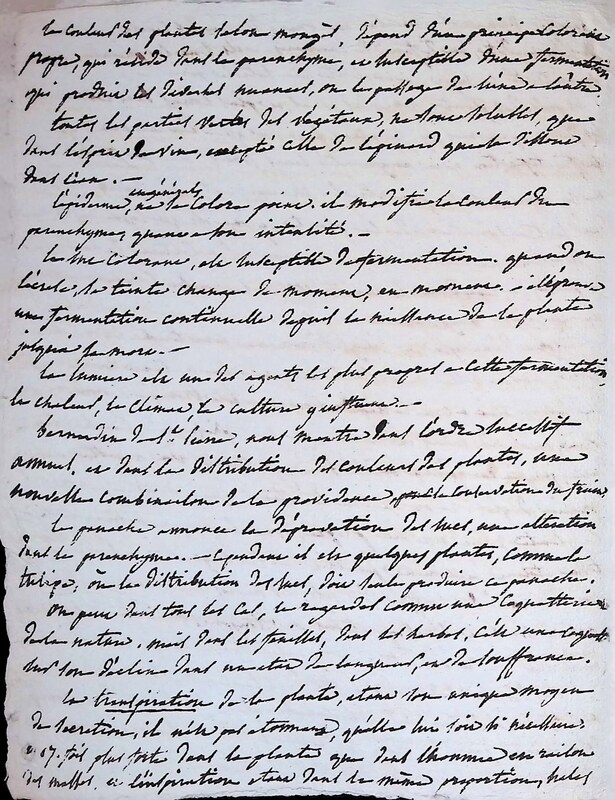 la couleur des plantes selon mongès, dépend d'un principe colorant
propre, qui réside dans le parenchyme, et susceptible d'une fermentation
qui produit les diverses nuances, ou le passage de l'une a l'autre.
toutes les parties vertes des végétaux, ne sont solubles, que
dans l'esprit de vin, excepté celle de l'épinard qui se dissout
dans l'eau. —
l'épiderme, en général, ne se colore point. il modifie la couleur du
parenchyme, quant a son intensité. —
le suc colorant, est susceptible de fermentation. quand on
l'écrase, la teinte change de moment, en moment. il éprouve
une fermentation continuelle depuis la naissance de la plante
jusqu'à sa mort. —
la lumiere est un des agents les plus propres a cette fermentation,
la chaleur, le climat, la culture y influent. —
bernardin de St. pierre, nous montre dans l'ordre successif
annuel, et dans la distribution des couleurs des plantes, une
nouvelle combinaison de la providence, pour la conservation du
le panache annonce la dépravation des sucs, une altération
dans le parenchyme. — cependant il est quelques plantes, comme la
tulipe, où la distribution des sucs, doit seule produire ce panache.
on peut dans tous les cas, le regarder comme une coquetterie
de la nature. mais dans les feuilles, dans les herbes, c'est une
sur son déclin dans un état de langueur, et de souffrance.
la transpiration de la plante, étant son unique moyen
de secretion, il n'est pas étonnant, qu'elle lui soit si nécessaire.
17. fois plus forte dans la plante que dans l'homme en raison
des masses, et l'inspiration étant dans la même proportion,